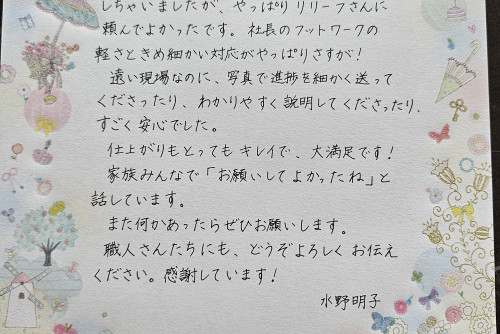 しちゃいましたが、やっぱり リリーフさんに
頼んでよかったです。社長のフットワークの
軽さときめ細かい対応がやっぱりさすが!
遠い現場なのに、写真で進捗を細かく送って
くださったり、わかりやすく説明してくださったり、
すごく安心でした。
仕上がりもとっても キレイで、大満足です!
家族みんなで「お願いしてよかったね」と
話しています。
また何かあったらぜひお願いします。
職人さんたちにも、どうぞよろしくお伝え
ください。感謝しています!
水野明子